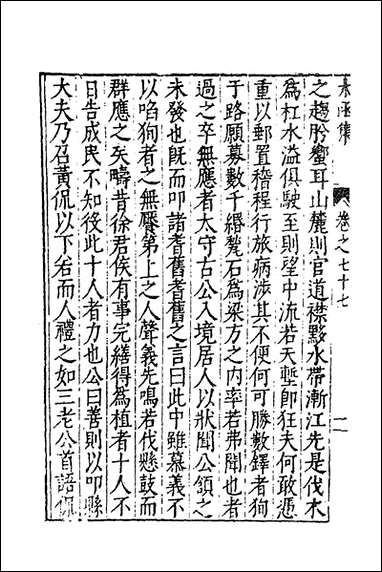 太函集 卷之七十七 二
之趨肸蠁耳山麓則官道襟黟水帶漸江先是伐木
爲杠水溢俱駛至則望中流若天塹卽狂夫何敢慿
重以郵置稽程行旅病涉其不便何可勝數鐸者狗
于路願募數千緡甃石爲梁方之内率若弗聞也者
過之卒無應者太守古公入境居人以狀聞公頷之
未發也旣而叩諸耆舊耆舊之言曰此中雖慕義不
以啗狗者之無饜第上之人聲義先鳴若伐縣鼓而
群應之矣疇昔徐君侯有事完繕得爲植者十人不
日告成民不知役此十人者力也公曰善則以叩縣
大夫乃召黃侃以下若而人禮之如三老公首語侃